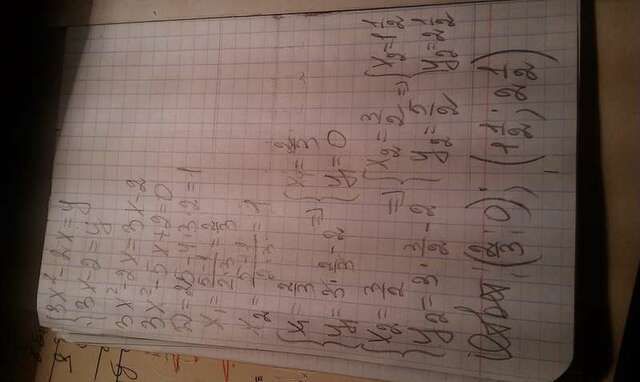 {3x²-2x=y
{3x-2=y
3x²-2x=3x-2
3x²-5x+2=0
D=25-4·3·2=1
x₁=(5-1)/(2·3)=2/3
x₂=
{x₁=2/3
{y₁=3·2/3-2 => {x₁=2/3 {y₁=0
{x₂=3/2
{y₂=3·3/2-2 => {x₂=3/2 {y₂=5/2 => {x₂=1 1/2 {y₂=2 1/2
Ответ: (2/3; 0); (1 1/2; 2 1/2)